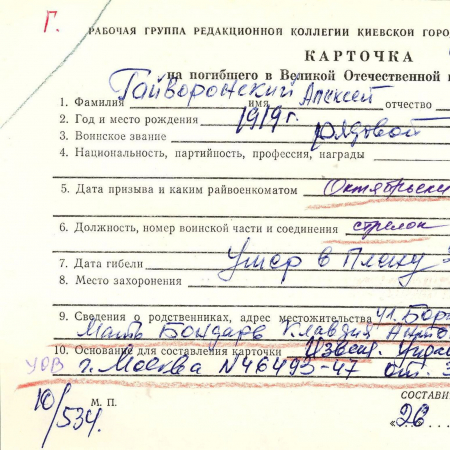 Г.
РАБОЧАЯ ГРУППА РЕДАКЦИОННОЙ КОЛЛЕГИИ КИЕВСКОЙ ГОРО
КАРТОЧКА
на погибшего в Великой Отечественной
1. Фамилия Гайворонский имя Алексей отчество
2. Год и место рождения 1919 г.
3. Воинское звание рядовой
4. Национальность, партийность, профессия, награды
5. Дата призыва и каким райвоенкоматом Октябрьски
6. Должность, номер воинской части и соединения стрелок
7. Дата гибели Умер в плену
8. Место захоронения
9. Сведения о родственниках, адрес местожительства ул. Бор
Мать Бондарь Клавдия
10. Основание для составления карточки Извещ.
г. Москва N 46493-47 от.
10/534.
М. П.
СОСТАВИ
«26